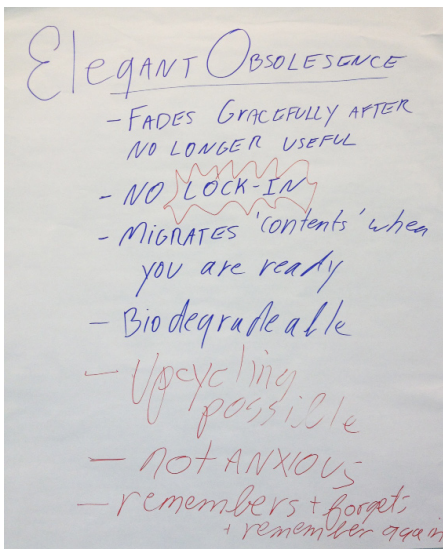 Elegant Obsolesence
- Fades Gracefully after
no longer useful
- No Lock-in
- Migrates 'contents' when
you are ready
- Biodegradeable
- Upcycling
possible
- not anxious
- remembers + forgets
+ remember again